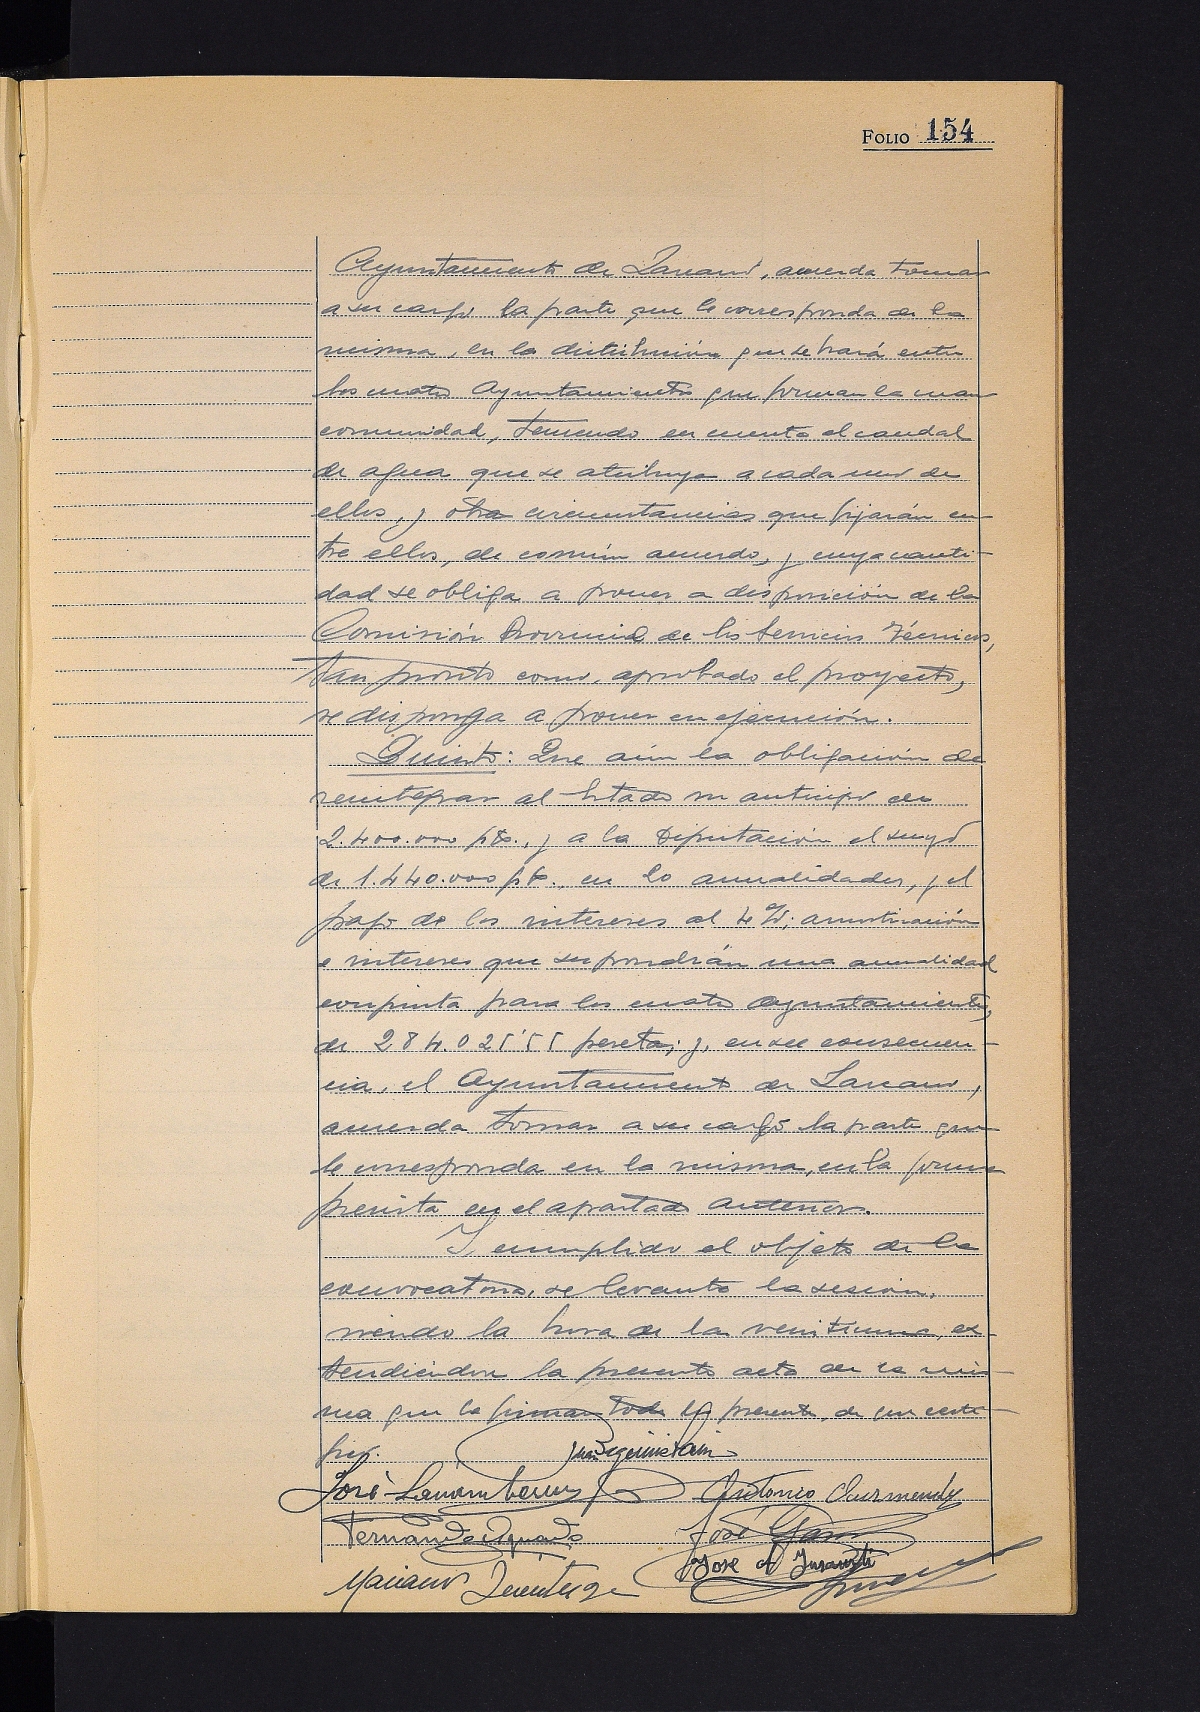 FOLIO 154
Ayuntamiento de Lazcano, acuerda tomar
a su cargo la parte que le corresponda de la
misma, en la distribución que se hará entre
los cuatro Ayuntamientos que forman la man
comunidad, teniendo en cuenta el caudal
de agua que se atribuye a cada uno de
ellos, y otras circunstancias que fijarán en
tre ellos, de común acuerdo, y cuya canti-
dad se obliga a poner a disposición de la
Comisión Provincial de los Servicios Técnicos,
tan pronto como, aprobado el proyecto,
se disponga a poner en ejecución.
Quinto: Que aún la obligación de
reintegrar al Estado su anticipo de
2.400.000 pts., y a la Diputación el suyo
de 1.440.000 pts., en 20 anualidades, y el
pago de los intereses al 4 %; amortización
e intereses que supondrán una anualidad
conjunta para los cuatro ayuntamientos,
de 284.025'55 pesetas; y, en su consecuen-
cia, el Ayuntamiento de Lazcano,
acuerda tomar a su cargo la parte que
le corresponda en la misma, en la forma
prevista en el apartado anterior.
Y, cumplido el objeto de la
convocatoria, se levanta la sesión,
siendo la hora de las veintiuna, ex-
tendiéndose la presente acta de la mis-
ma que la firman todos los presentes, de que certi-
fico.
José
Antonio
Fernando Aguado
José
Mariano
Jose A